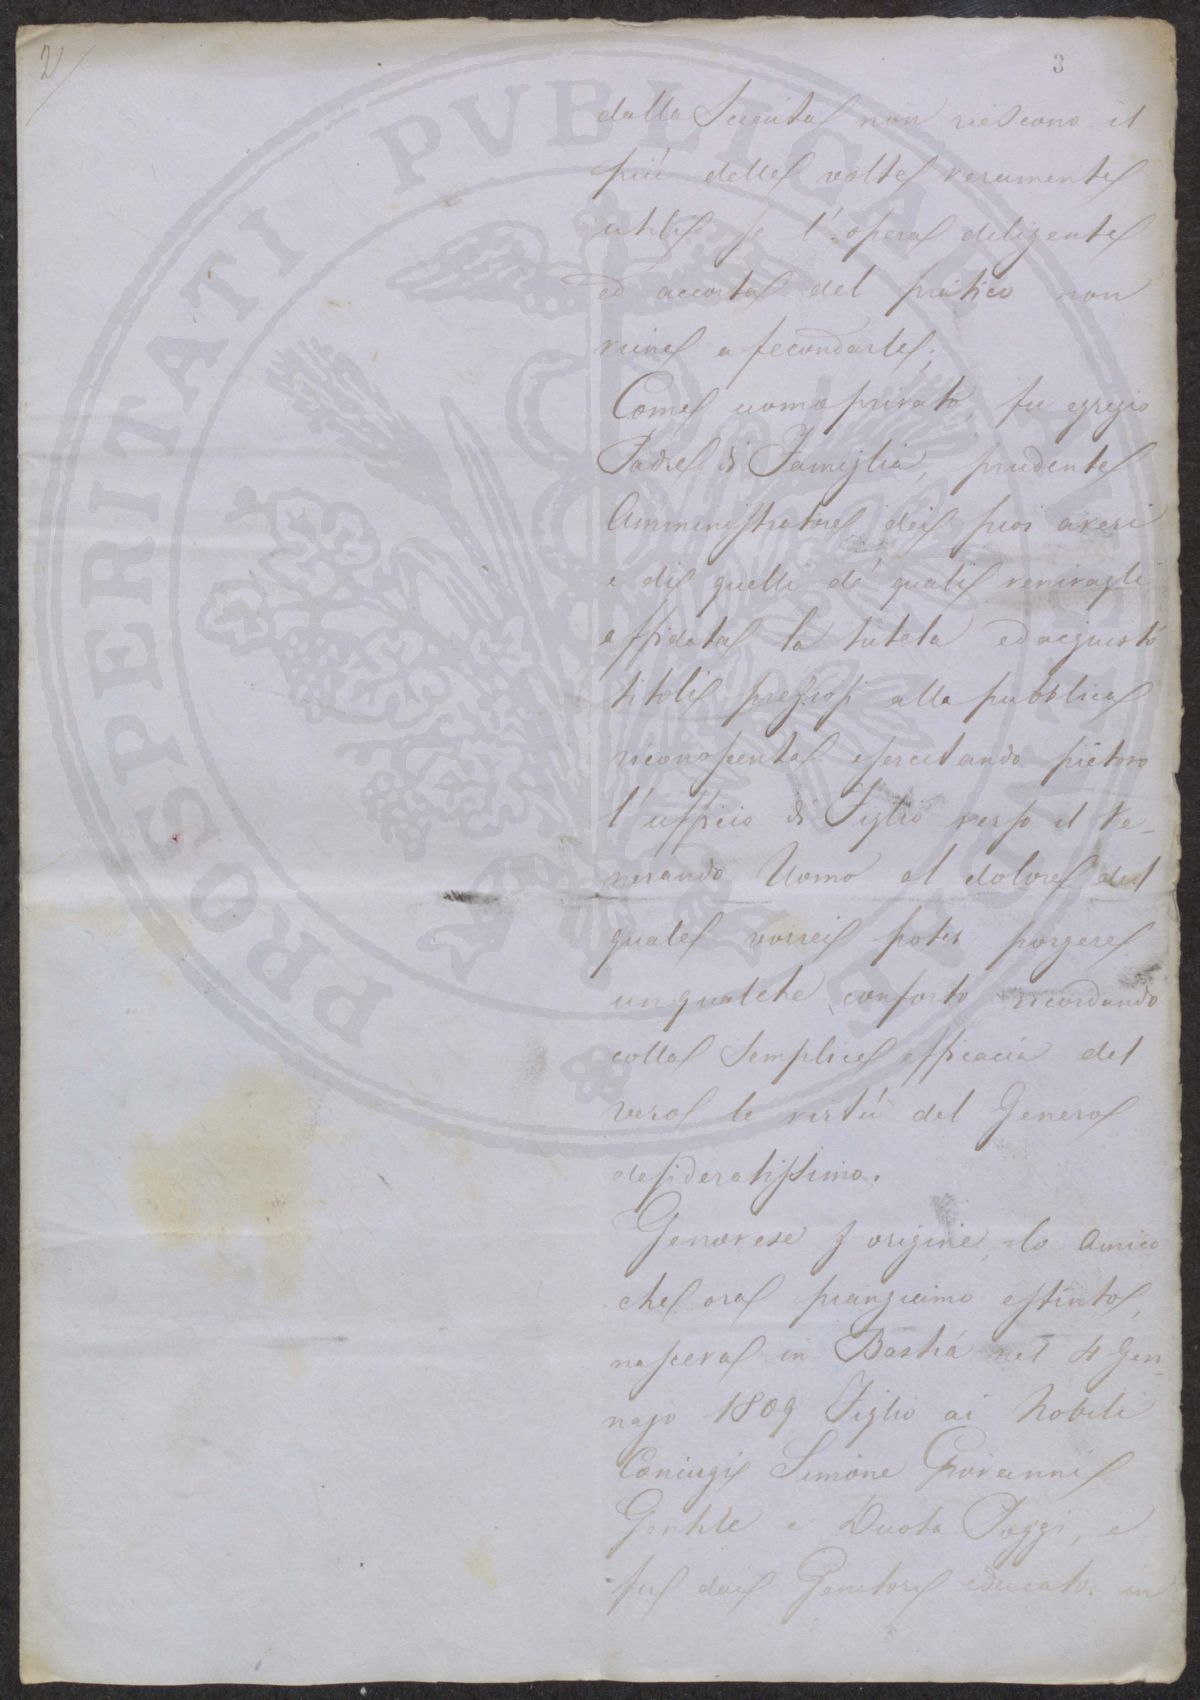 2/
3
dalla Scienza non riescono il
più delle volte veramente
utili se l'opera diligente
ed accorta del pratico non
viene a fecondarle;
Come uomo privato, fu egregio
Padre di Famiglia, prudente
Amministratore dei suoi averi
e di quelli de' quali venivagli
affidata la tutela ed acquistò
titoli preziosi alla pubblica
riconoscenza esercitando pietoso
l'ufficio di Figlio verso il Ve-
nerando Uomo al dolore del
quale vorrei poter porgere
un qualche conforto ricordando
colla semplice efficacia del
vero le virtù del Genero
desideratissimo.
Genovese d'origine, lo Amico
che ora piangiamo estinto,
nasceva in Bastia nel 4 Gen-
najo 1809 Figlio ai Nobili
Coniugi Simone Giovanni
Gentile e Poggi, e
fu dai Genitori educato in
PROSPERITATI PVBLICAE